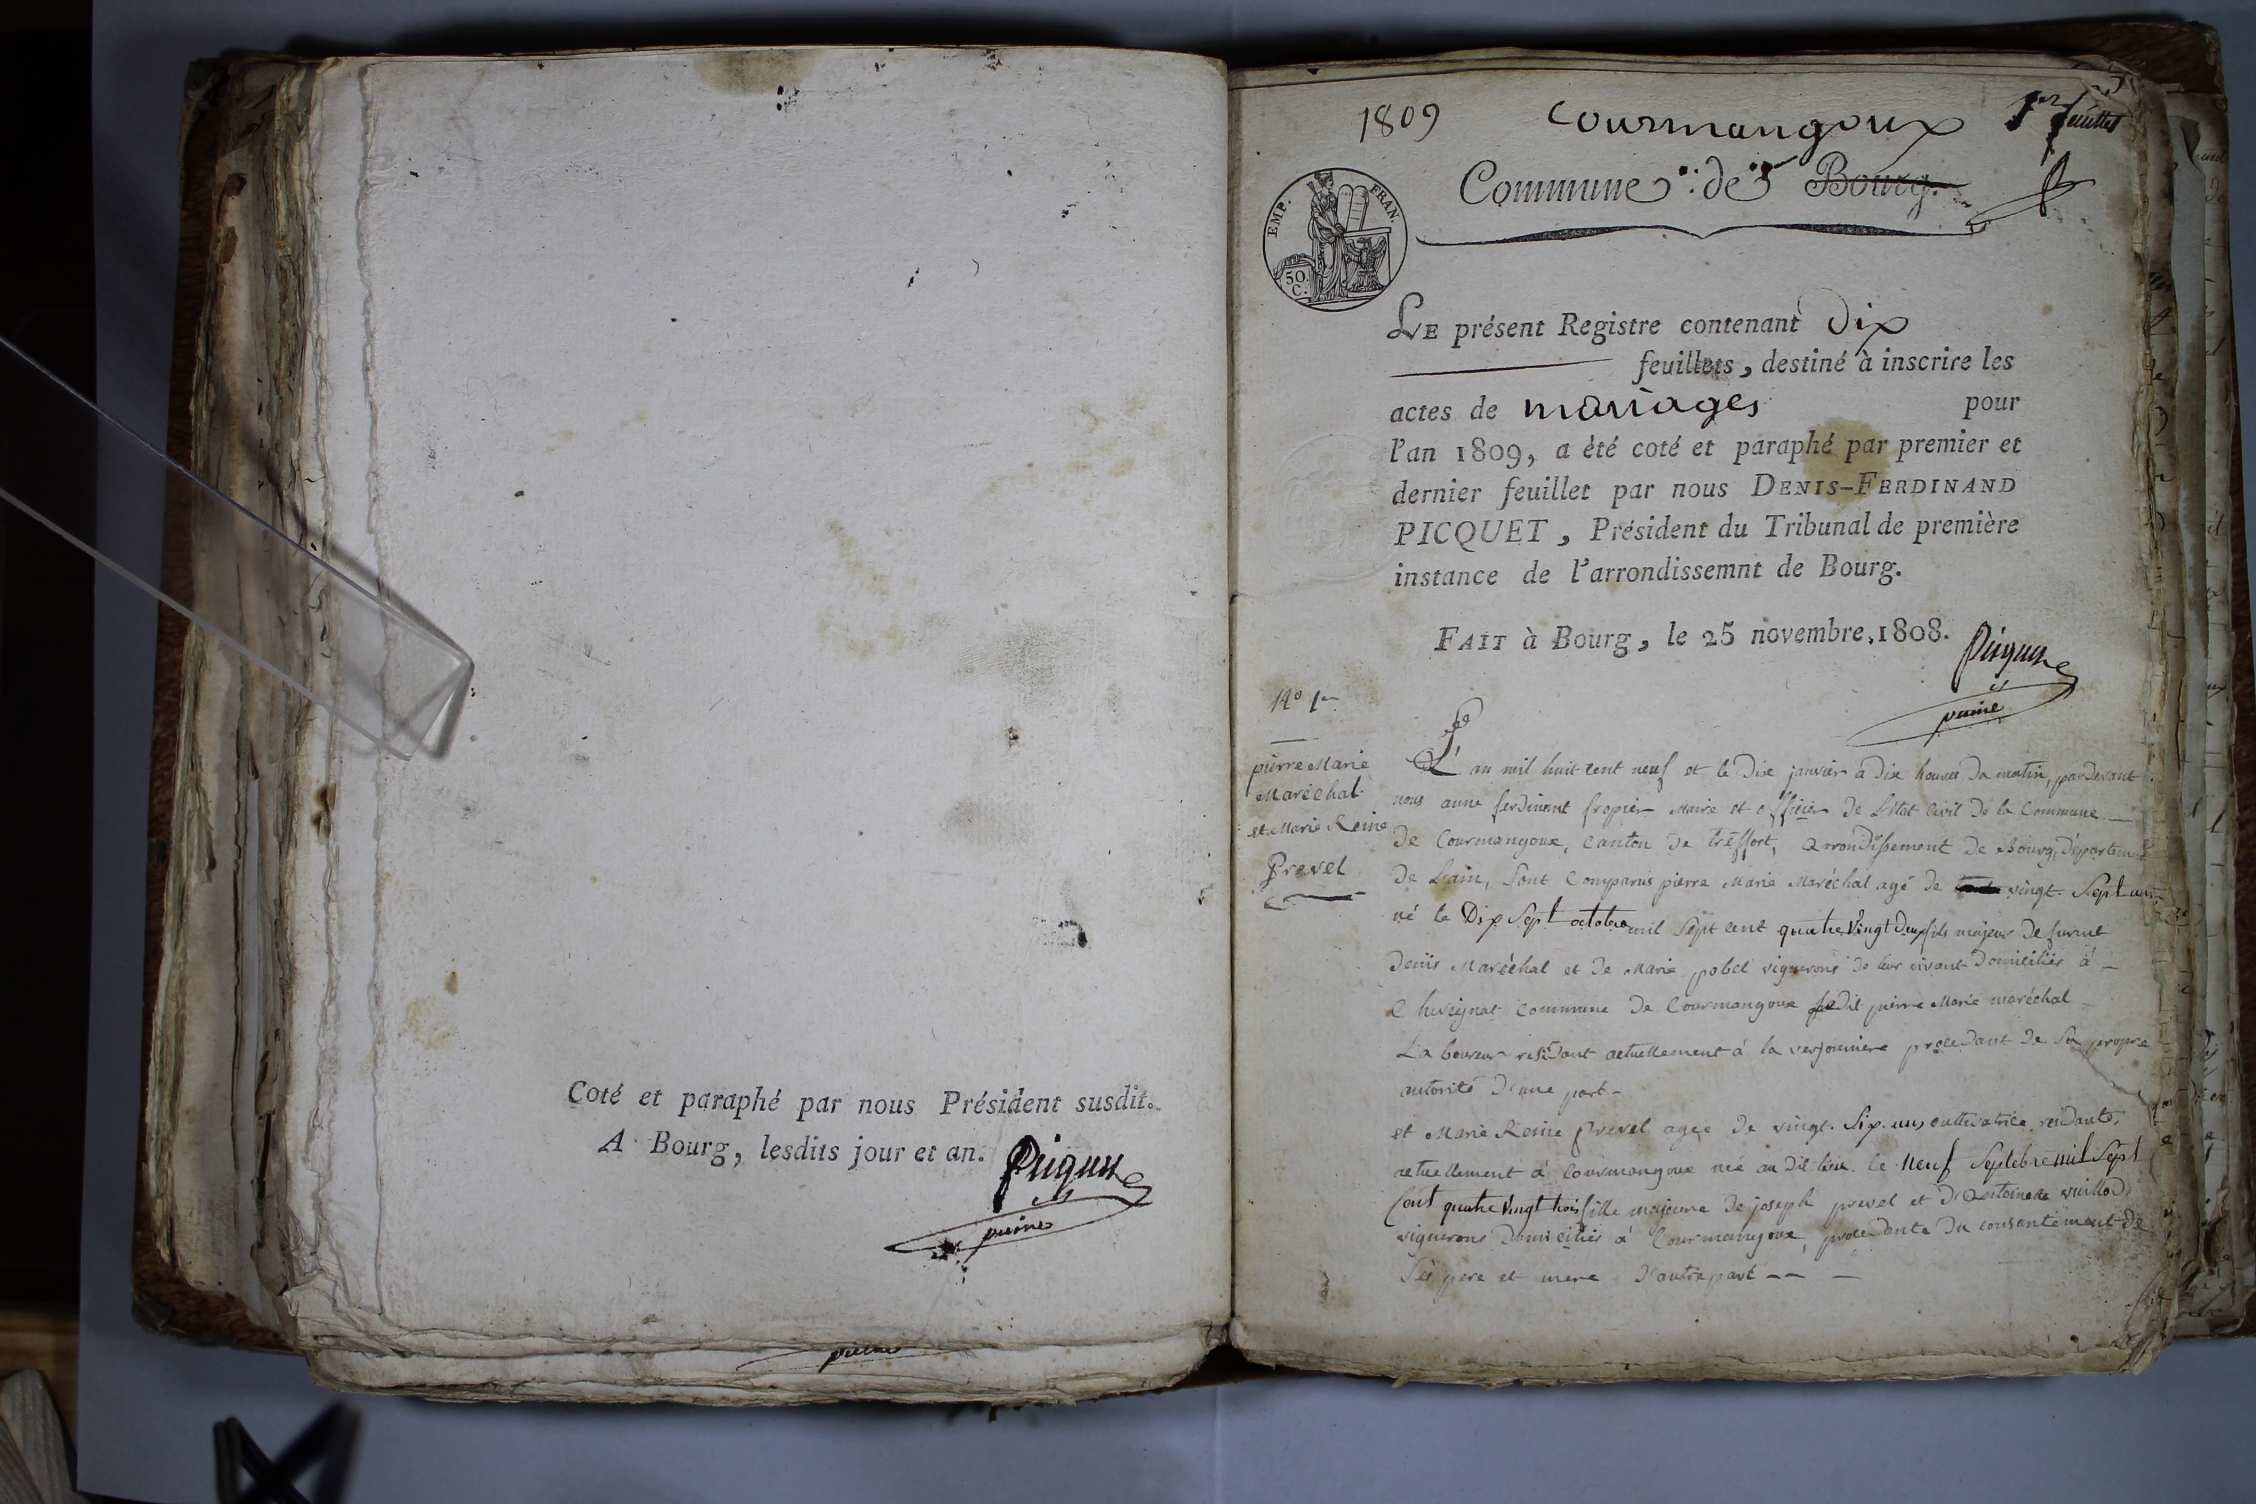 Coté et paraphé par nous Président susdit.
A Bourg, lesdits jour et an.
1809
Courmangoux
1er feuillet
Commune de Bourg.
EMP. FRAN.
50 C.
LE présent Registre contenant Dix
feuillets, destiné à inscrire les
actes de mariages pour
l'an 1809, a été coté et paraphé par premier et
dernier feuillet par nous DENIS-FERDINAND
PICQUET, Président du Tribunal de première
instance de l'arrondissemnt de Bourg.
FAIT à Bourg, le 25 novembre, 1808.
No 1er
pierre Marie
Maréchal
et Marie Reine
Prevel
L'an mil huit cent neuf et le dix janvier a dix heures du matin, pardevant
nous anne ferdinent fropier Maire et officier de L'état Civil de la Commune
de Courmangoux, Canton de treffort, arrondissement de Bourg, département
de Lain, sont Comparus pierre Marie Maréchal agé de vingt Sept ans
né le Dix Sept octobre mil Sept cent quatre Vingt deux fils majeur de furent
deniis Maréchal et de Marie pobel vignerons de leur vivant domiciliés à
Chevignat Commune de Courmangoux ledit pierre Marie maréchal
La boureur residant actuellement à la verjonniere procedant de Sa propre
autorité d'une part
et Marie Reine prevel agée de vingt Six ans cultivatrice residante
actuellement à Courmangoux née au dit lieu le Neuf Septebre mil Sept
Cent quatre Vingt trois fille majeure de joseph prevel et d'Antoinette vuillod
vignerons domiciliés à Courmangoux, procedante du consantement de
Ses pere et mere d'autre part